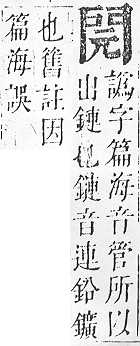 譌字篇海音管所以
出鏈也鏈音連鉛鑛
也舊註因
篇海誤